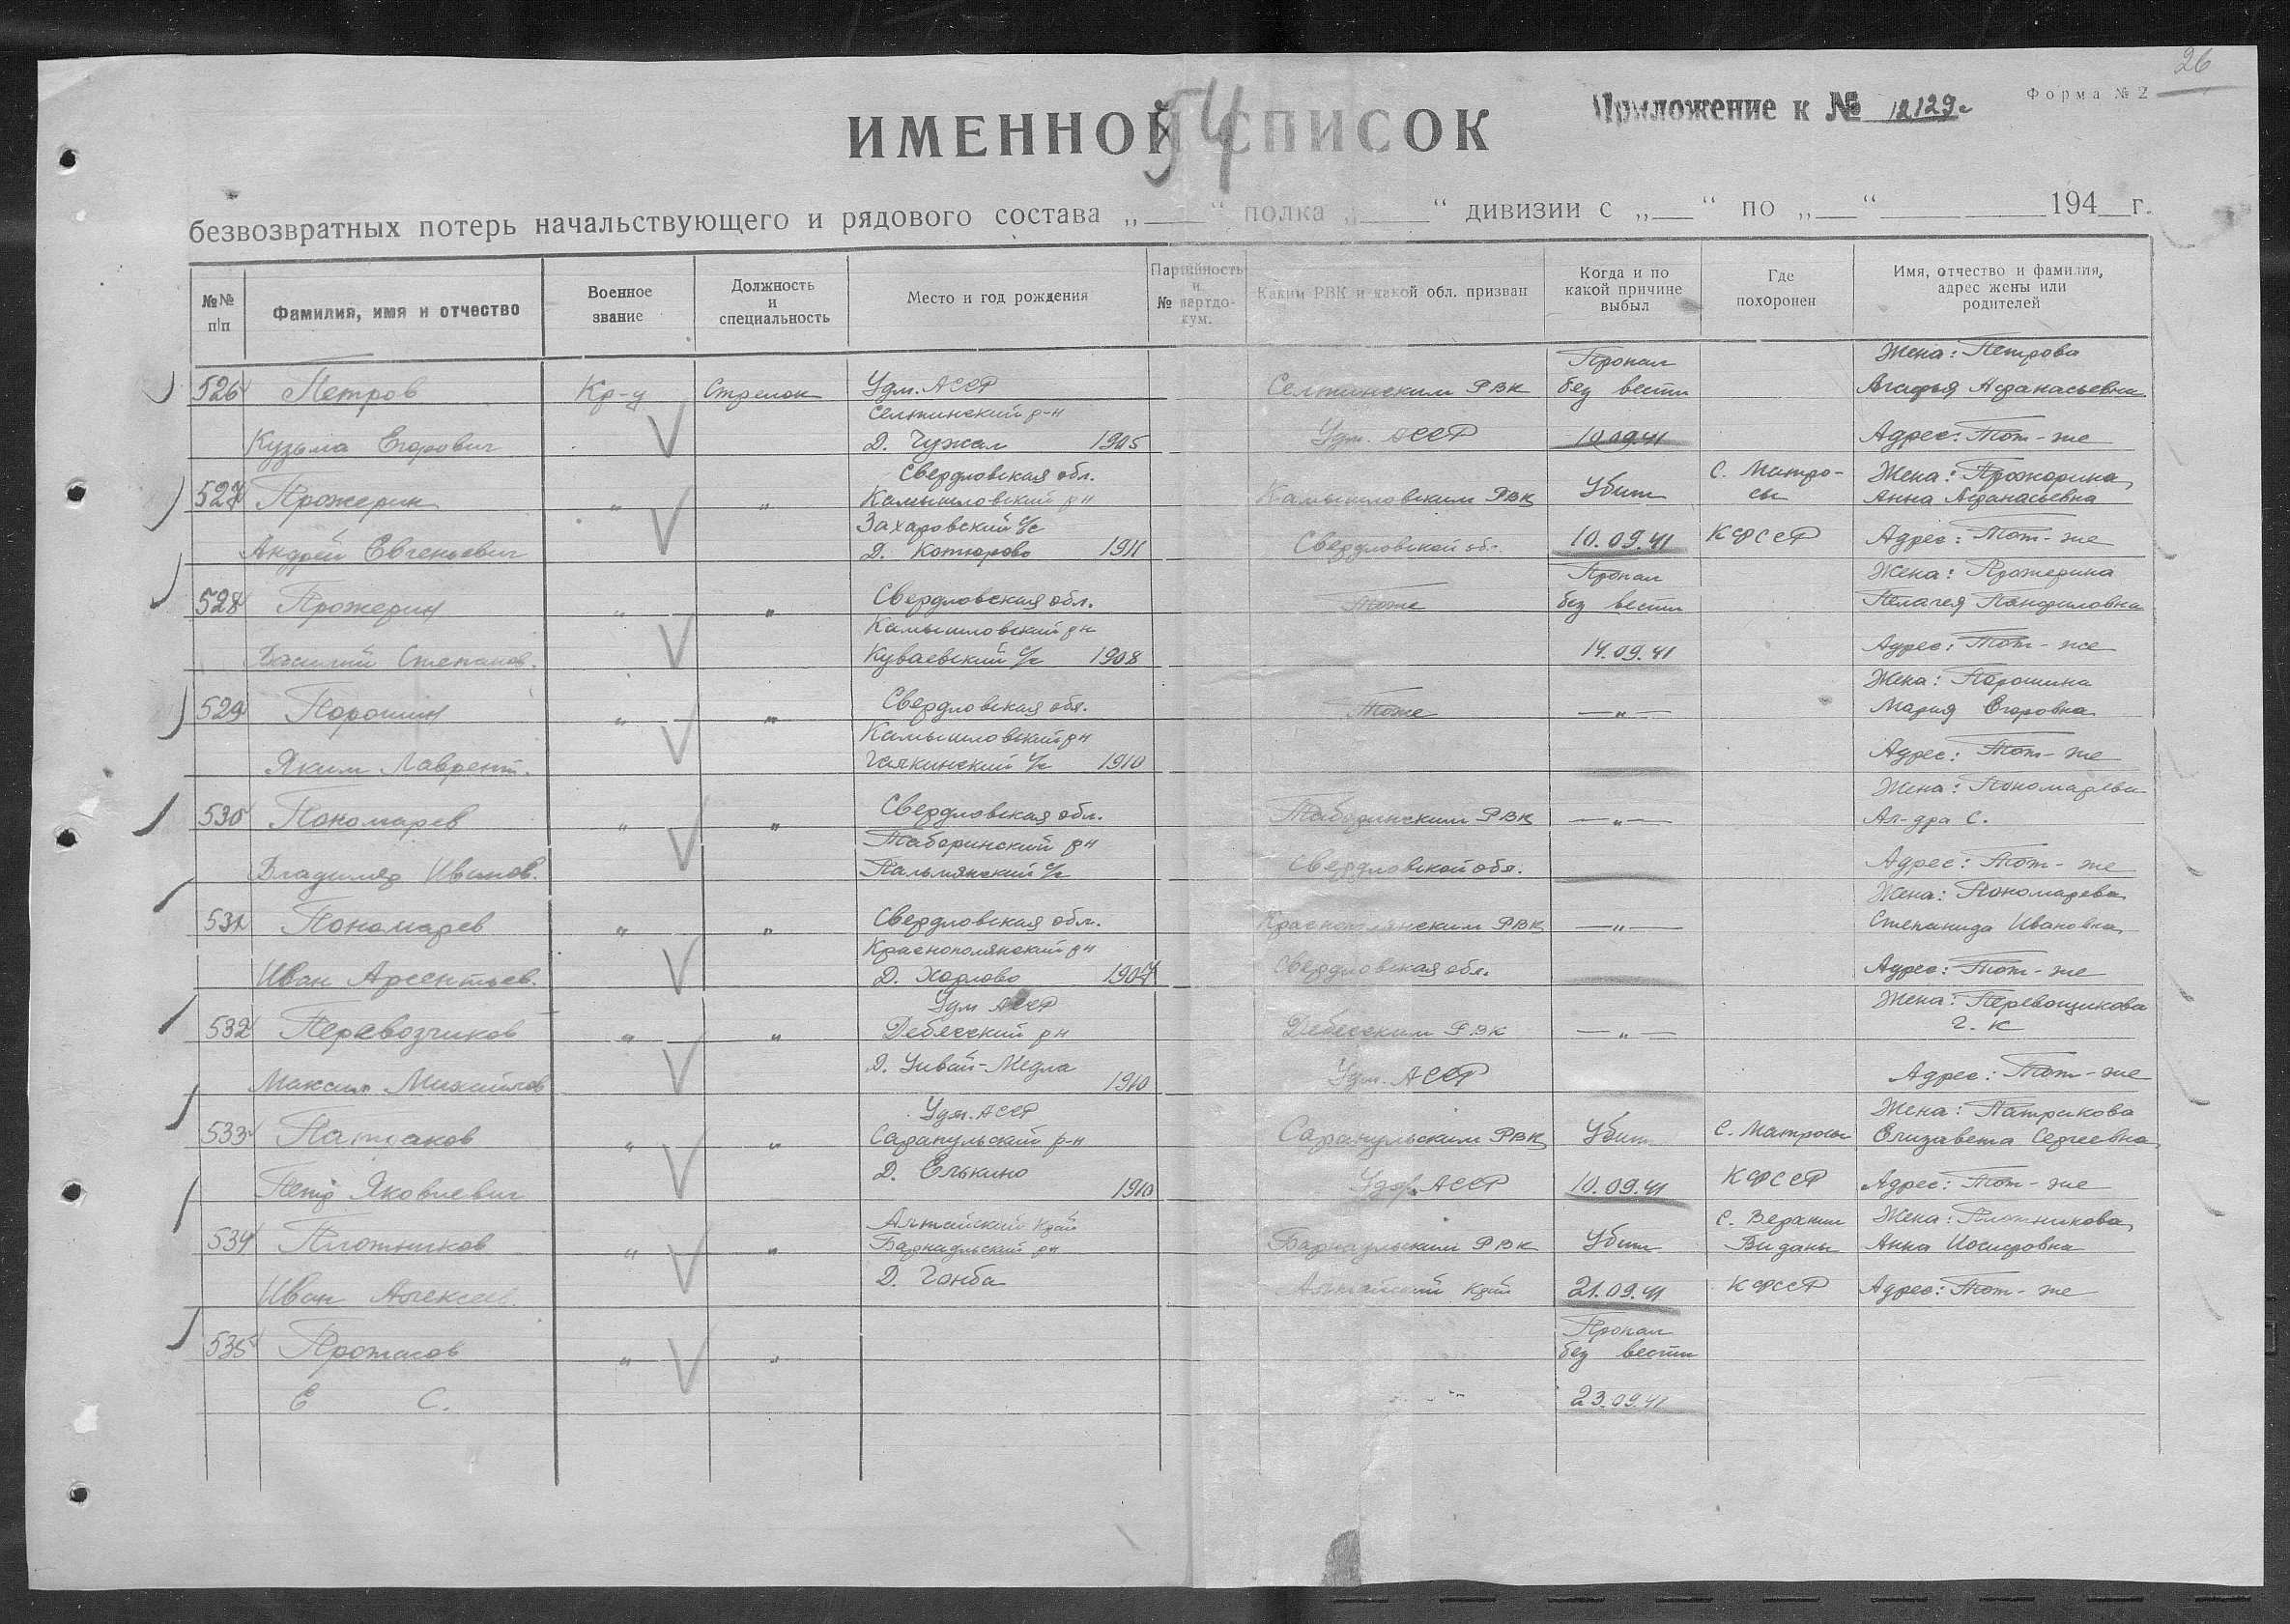 26
Форма № 2
Приложение к № 12129с
54
ИМЕННОЙ СПИСОК
безвозвратных потерь начальствующего и рядового состава „ “ полка „ “ дивизии с „ “ по „ “ 194 г.
№№ п/п
Фамилия, имя и отчество
Военное звание
Должность и специальность
Место и год рождения
Партийность и № партдокум.
Каким РВК и какой обл. призван
Когда и по какой причине выбыл
Где похоронен
Имя, отчество и фамилия, адрес жены или родителей
Пропал Жена: Петрова
526 Петров Кр-ц Стрелок Удм. АССР Селтинским РВК без вести Агафья Афанасьевна
Селтинский р-н
Кузьма Егорович Д. Чужал 1905 Удм. АССР 10.09.41 Адрес: Тот-же
Свердловская обл. С. Матро- Жена: Прожорина
527 Прожерин " " Камышловский рн Камышловским РВК Убит сы Анна Афанасьевна
Захаровский с/с
Андрей Евгеньевич Д. Котюрово 1911 Свердловской обл. 10.09.41 КФССР Адрес: Тот-же
Пропал Жена: Прожерина
528 Прожерин " " Свердловская обл. Тоже без вести Пелагея Панфиловна
Камышловский рн
Василий Степанов. Куваевский с/с 1908 14.09.41 Адрес: Тот-же
Жена: Порошина
529 Порошин " " Свердловская обл. Тоже — " — Мария Егоровна
Камышловский рн
Яким Лаврент. Галкинский с/с 1910 Адрес: Тот-же
Жена: Пономарева
530 Пономарев " " Свердловская обл. Таборинским РВК — " — Ал-дра С.
Таборинский рн
Владимир Иванов. Пальмянский с/с Свердловской обл. Адрес: Тот-же
Жена: Пономарева
531 Пономарев " " Свердловская обл. Краснополянским РВК — " — Степанида Ивановна
Краснополянский рн
Иван Арсентьев. Д. Харлово 1907 Свердловская обл. Адрес: Тот-же
Удм АССР Жена: Перевощикова
532 Перевозчиков " " Дебесский рн Дебесским РВК — " — Г. К
Максим Михайлов Д. Уйвай-Медла 1910 Удм. АССР Адрес: Тот-же
Удм. АССР Жена: Патракова
533 Патраков " " Сарапульский р-н Сарапульским РВК Убит С. Матросы Елизавета Сергеевна
Петр Яковлевич Д. Елькино 1910 АССР 10.09.41 КФССР Адрес: Тот-же
Алтайский край С. Верхнии Жена: Плотникова
534 Плотников " " Барнаульский рн Барнаульским РВК Убит Виданы Анна Иосифовна
Иван Алексеев. Д. Гоньба Алтайский край 21.09.41 КФССР Адрес: Тот-же
Пропал
535 Протасов " " без вести
Е С. 23.09.41